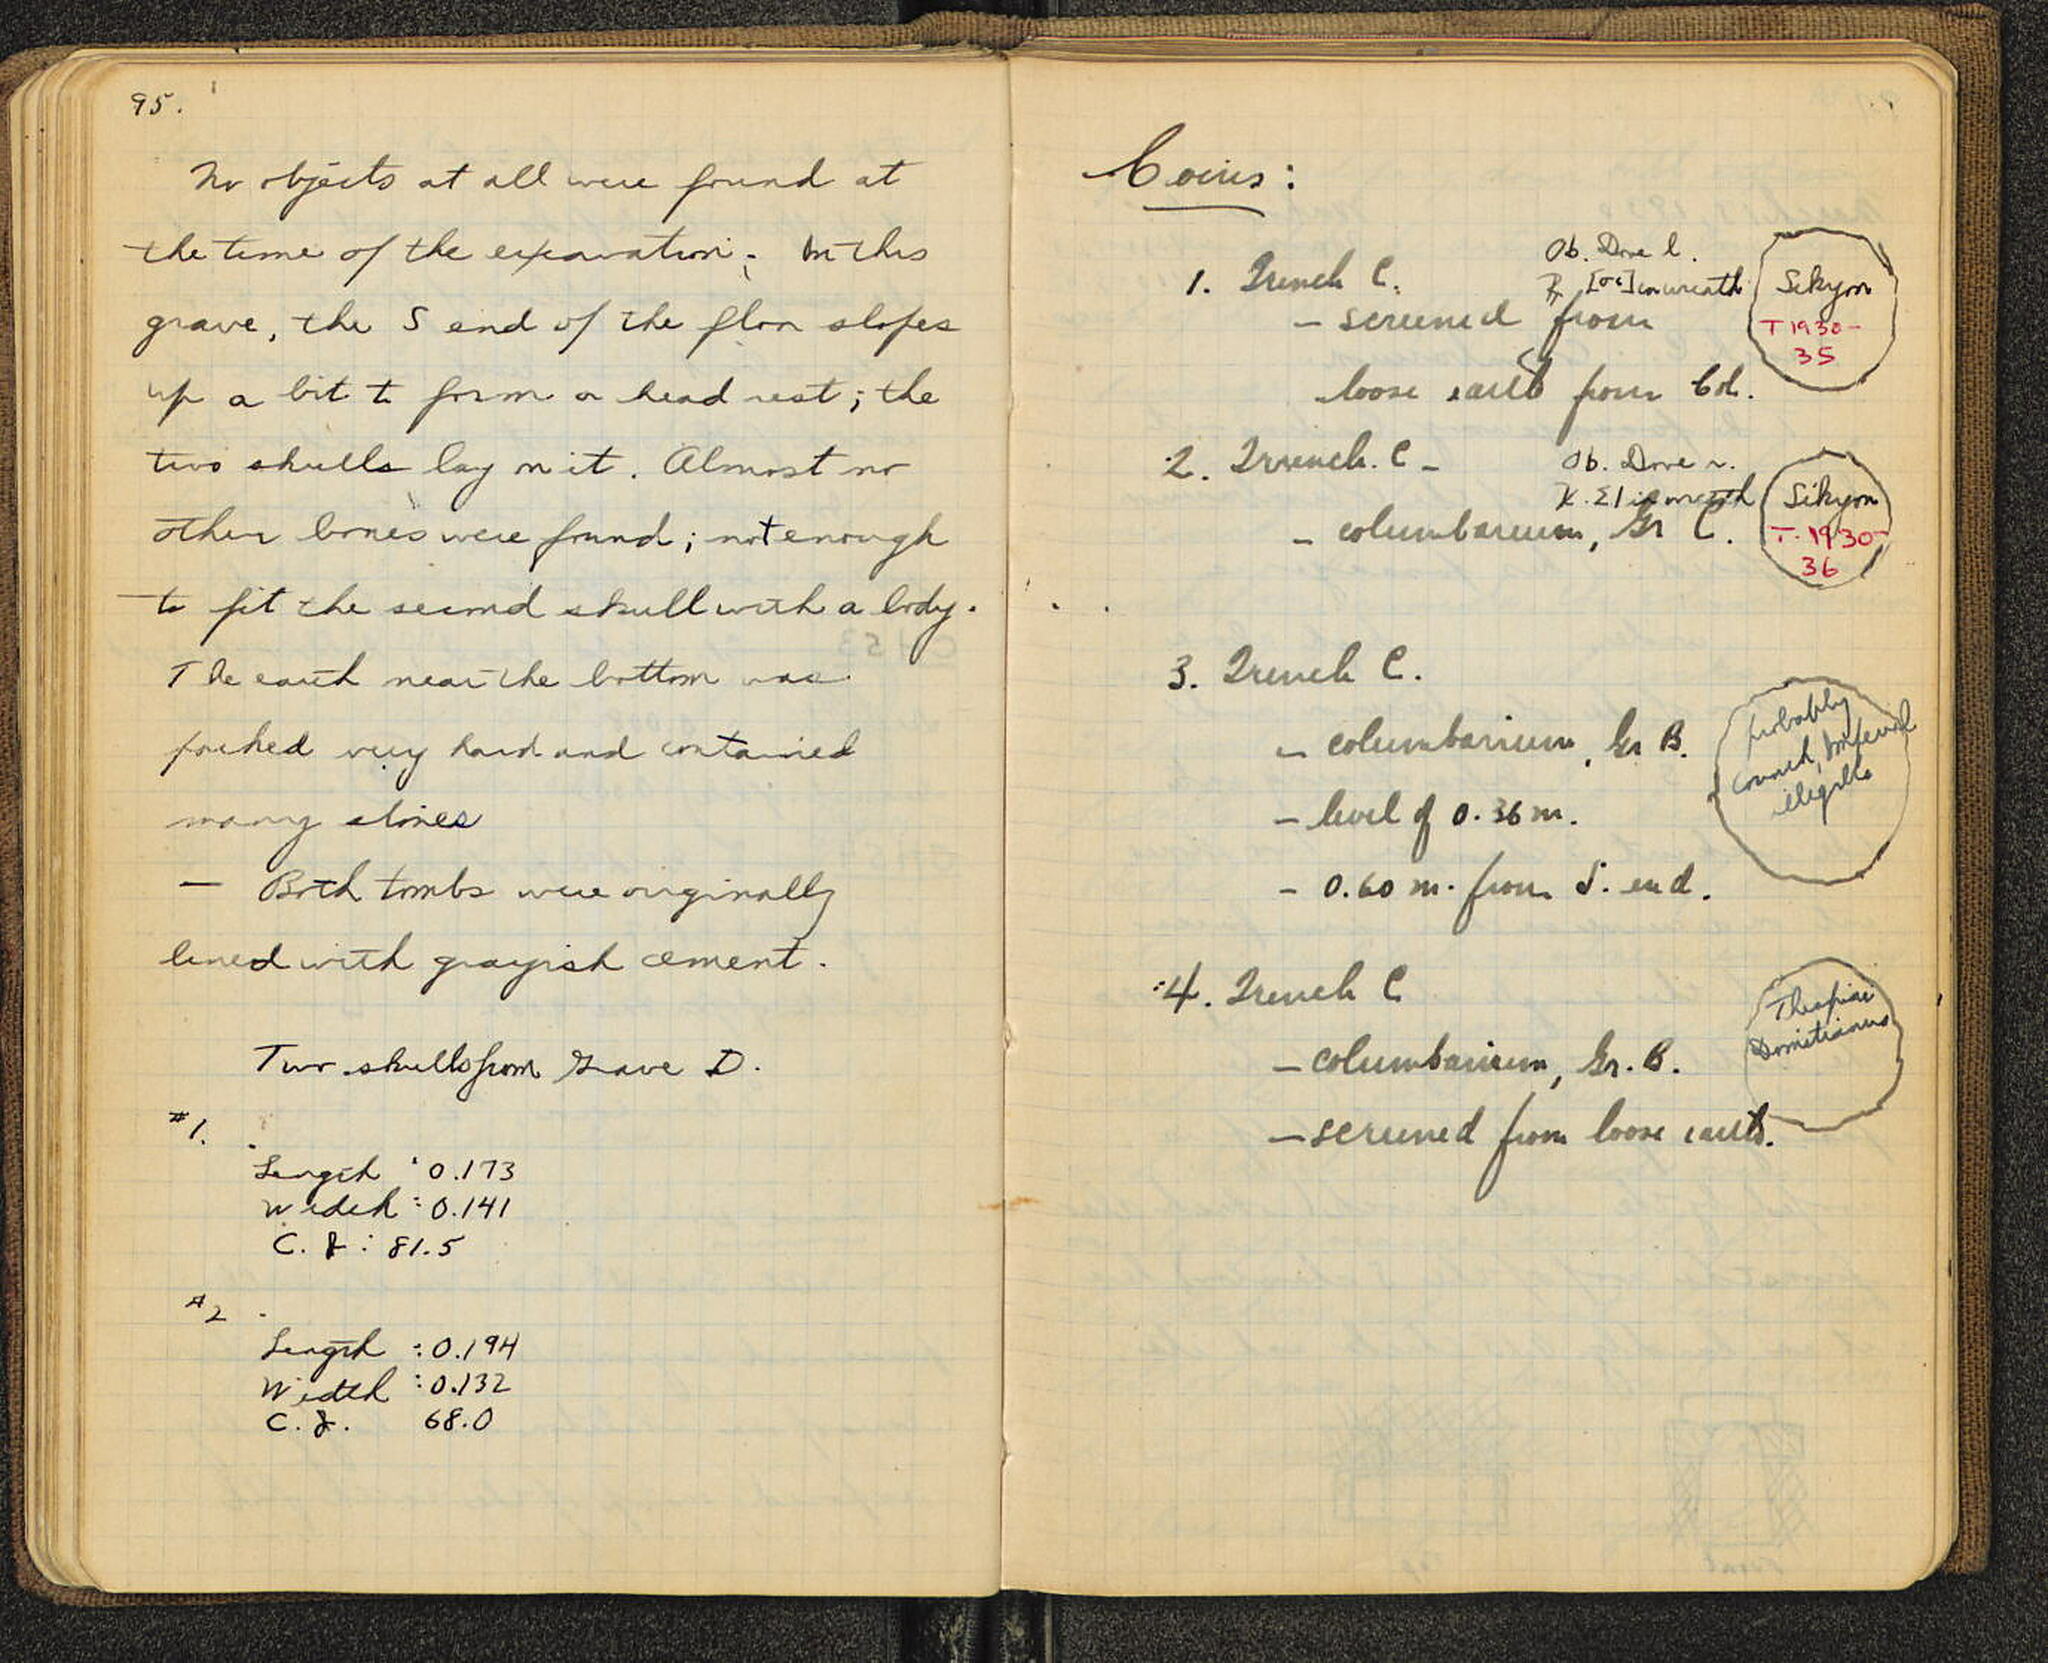 95.
No objects at all were found at
the time of the excavation. In this
grave, the S end of the floor slopes
up a bit to form a head rest; the
two skulls lay on it. Almost no
other bones were found; not enough
to fit the second skull with a body.
The earth near the bottom was
packed very hard and contained
many stones
— Both tombs were originally
lined with grayish cement.
Two skulls from Grave D.
#1.
Length : 0.173
Width : 0.141
C. I : 81.5
#2
Length : 0.194
Width : 0.132
C. I. 68.0
Coins:
1. Trench C.
Ob. Dove l.
R [σι] in wreath
Sikyon
T 1930-
35
- screened from
loose earth from Col.
2. Trench. C -
Ob. Dove r.
R. ΣΙ in wreath
Sikyon
T. 1930-
36
- columbarium, Gr C.
3. Trench C.
- columbarium, Gr B.
- level of 0.36 m.
- 0.60 m. from S. end.
probably
Imperial
illegible
4. Trench C
- columbarium, Gr. B.
- screened from loose earth.
Thespiai
Domitianus